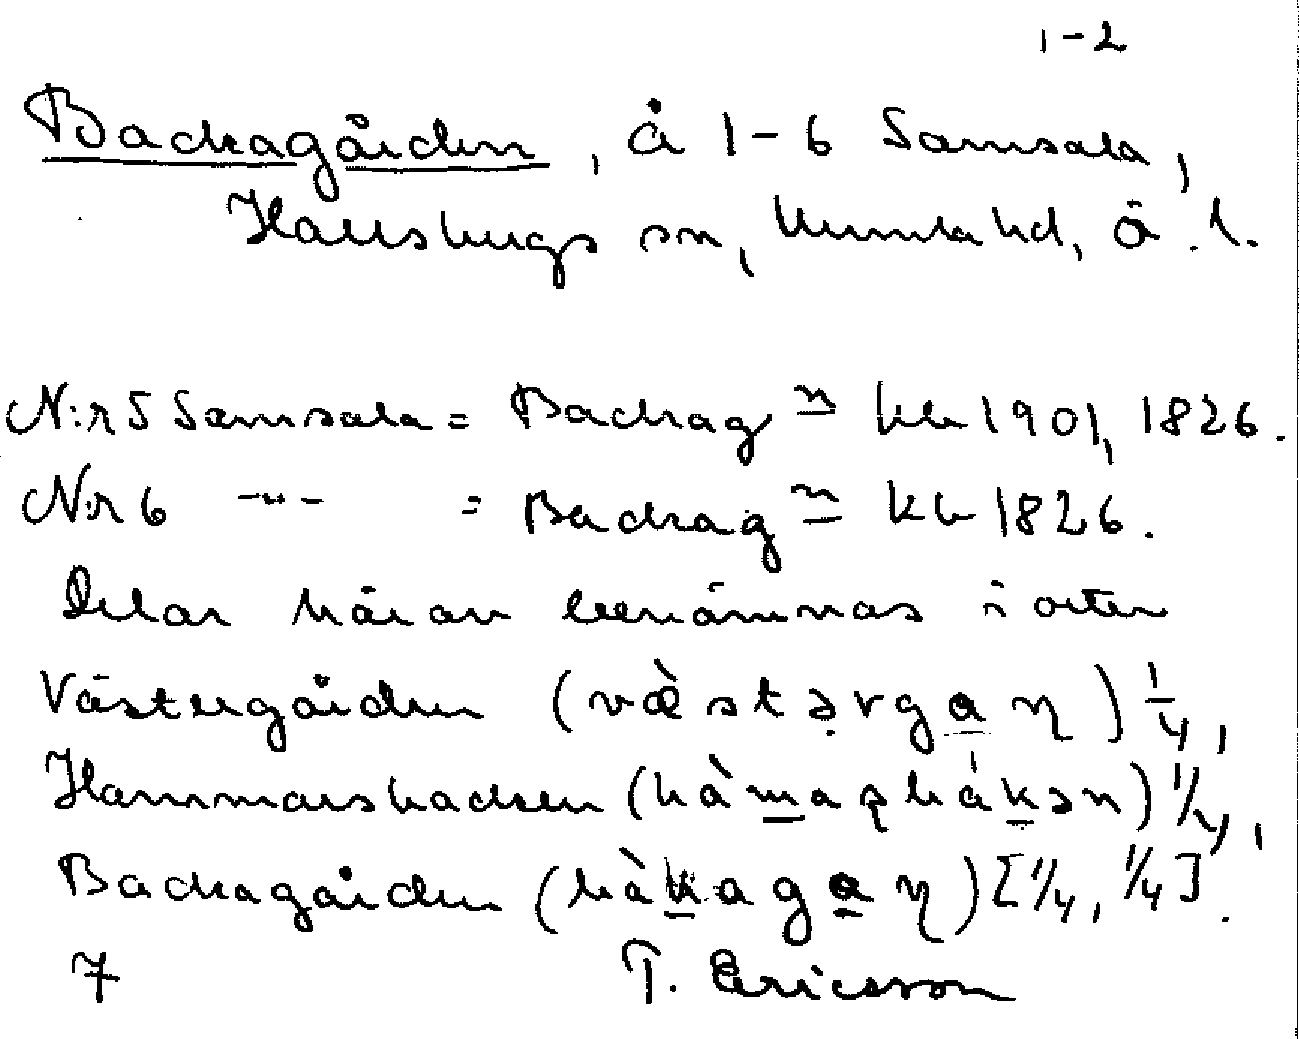 1-2
Backagården, å 1-6 Samsala,
Hallsbergs sn, Kumla hd, Ö.l.
N:r 5 Samsala = Backag:n kb 1901, 1826.
N:r 6 -"- = Backag:n kb 1826.
Delar härav benämnas i orten
Västergården (væ̀stərga̲ɳ) 1/4,
Hammarsbacken (hàm̲aʂbák̲ən) 1/4,
Backagården (bàk̲aga̲ɳ) [1/4, 1/4].
7 T. Ericsson